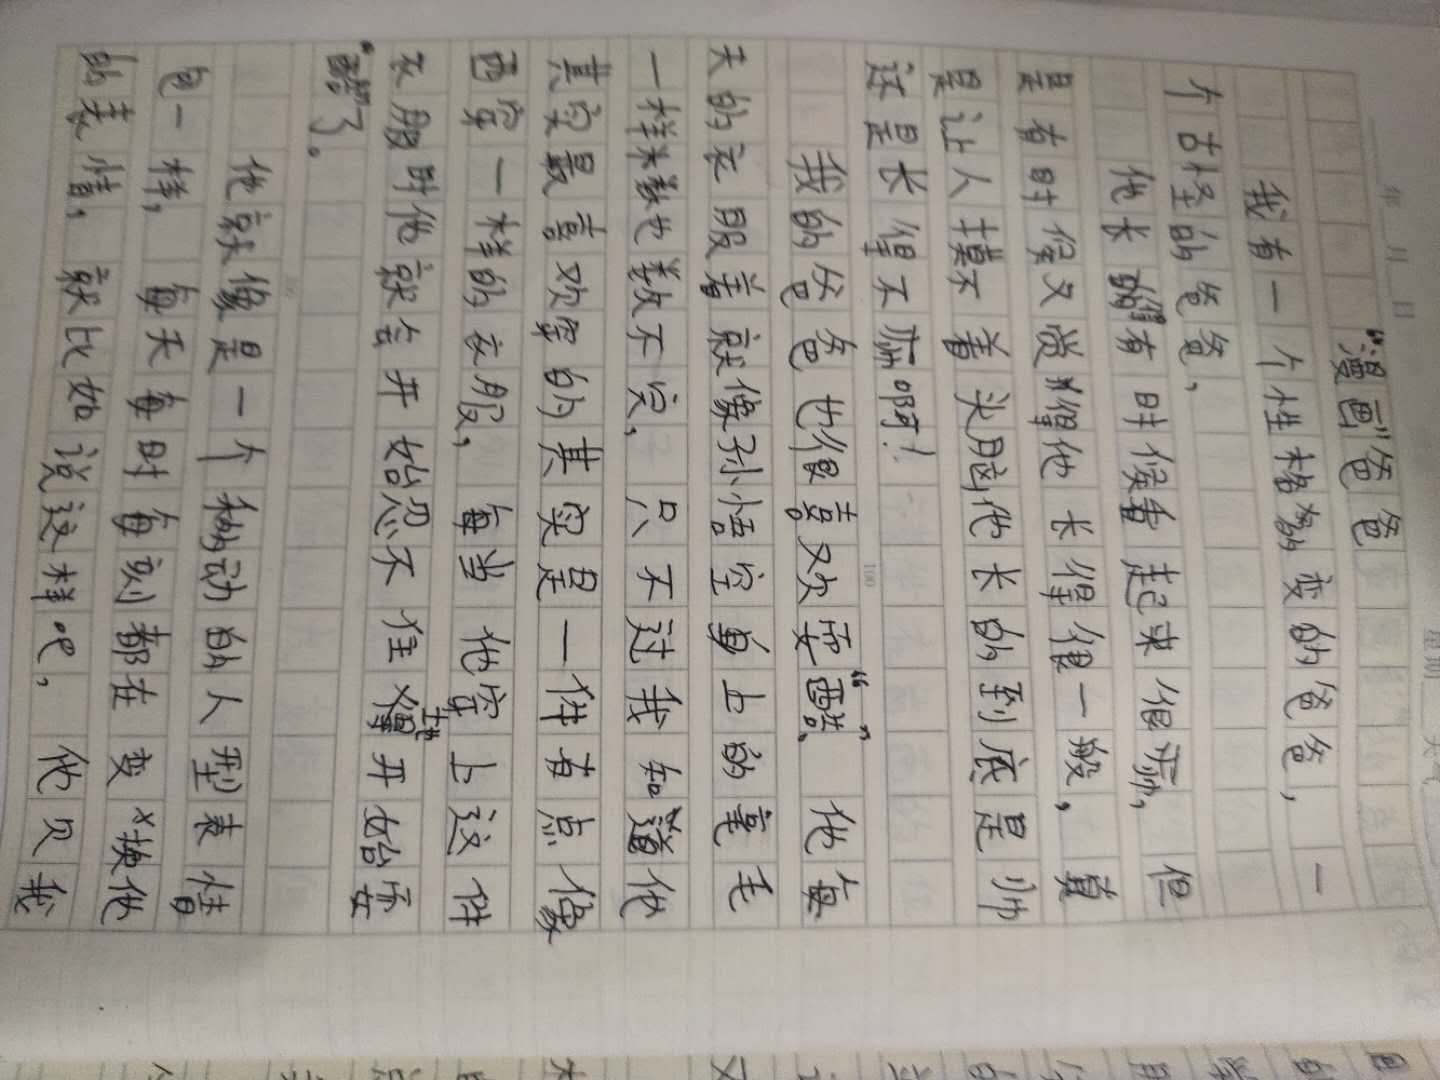 年 月 日 星期 天气
“漫画”爸爸
我有一个性格多变的爸爸，一
个古怪的爸爸，
他长得有时候看起来很帅，但
是有时候又觉得他长得很一般，真
是让人摸不着头脑他长的到底是帅
还是长得不帅啊！
100
我的爸爸也很喜欢耍“酷”，他每
天的衣服着就像孙悟空身上的毫毛
一样来数也数不完，只不过我知道他
其实最喜欢穿的其实是一件有点像
西穿一样的衣服，每当他穿上这件
衣服时他就会开始忍不住地开始耍
“酷”了。
他就像是一个移动的人型表情
包一样，每天每时每刻都在变换他
的表情，就比如说这样吧，他见我